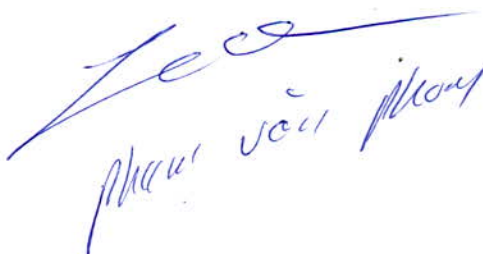 phạm văn phong